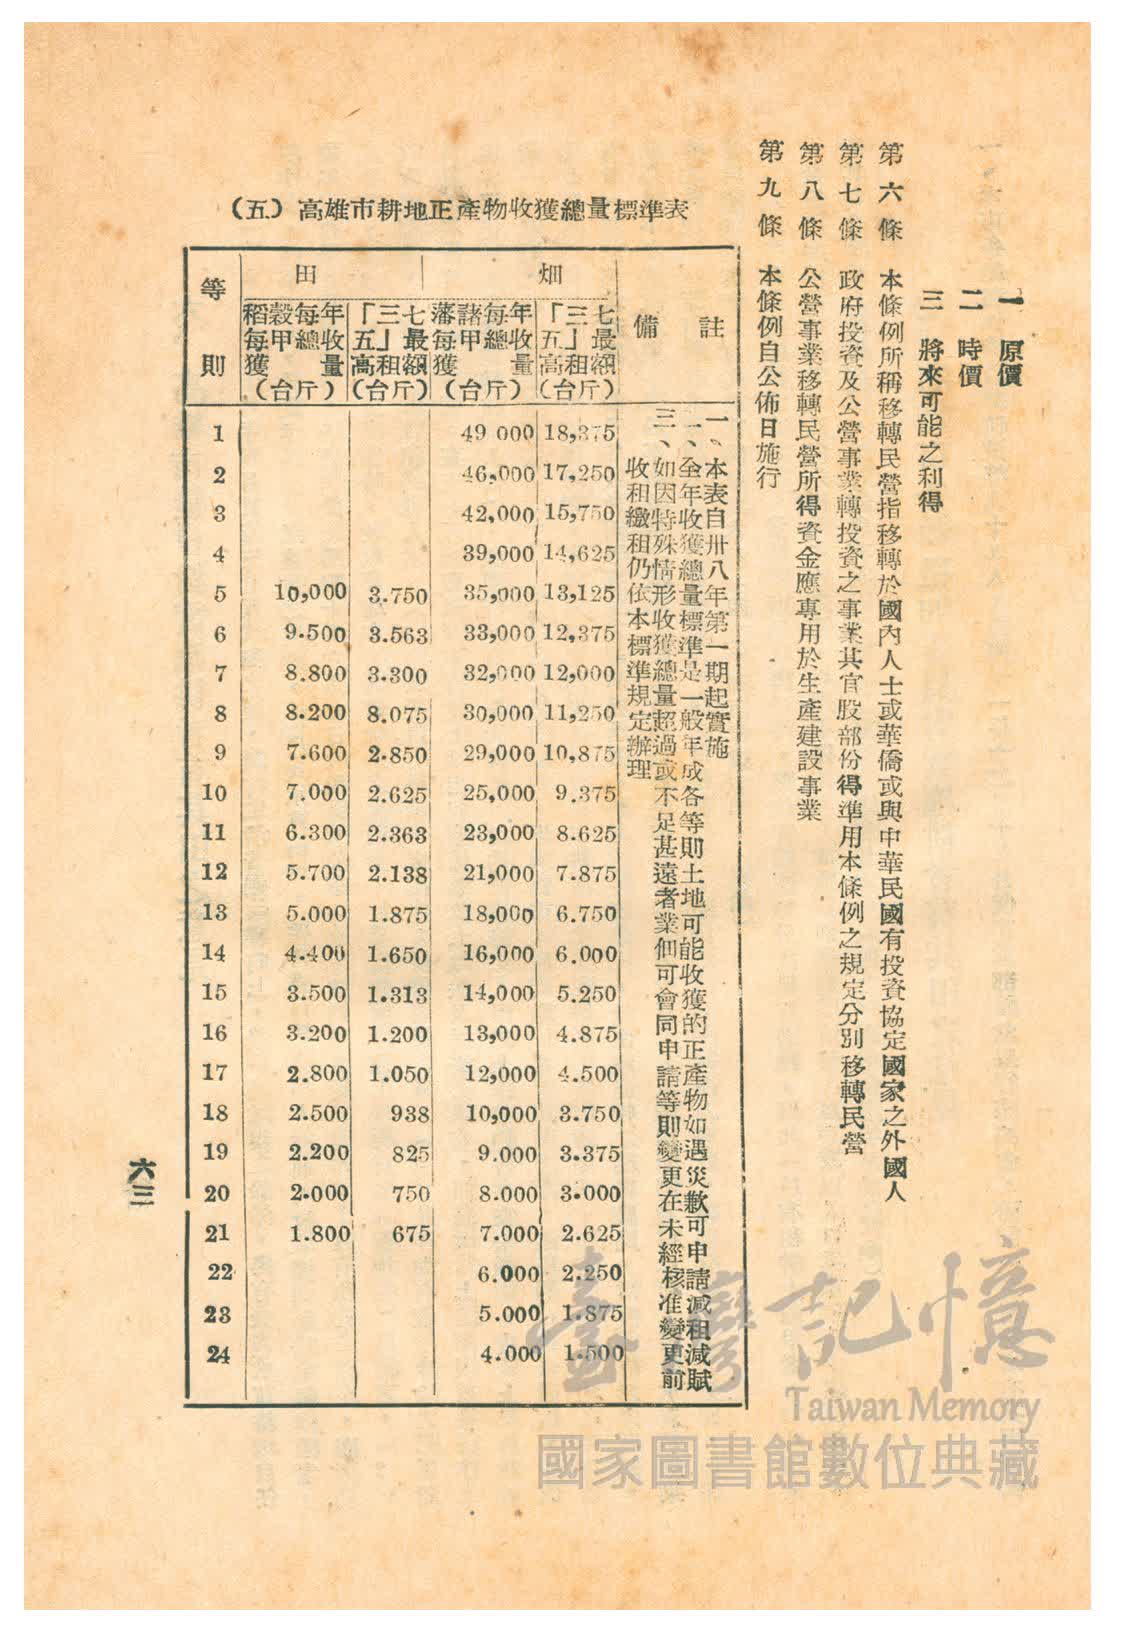 一 原價
二 時價
三 將來可能之利得
第六條 本條例所稱移轉民營指移轉於國內人士或華僑或與中華民國有投資協定國家之外國人
第七條 政府投資及公營事業轉投資之事業其官股部份得準用本條例之規定分別移轉民營
第八條 公營事業移轉民營所得資金應專用於生產建設事業
第九條 本條例自公佈日施行
(五)高雄市耕地正產物收獲總量標準表
等則 田 畑 備註
稻穀每年每甲總收獲量(台斤) 「三七五」最高租額(台斤) 藩諸每年每甲總收獲量(台斤) 「三七五」最高租額(台斤)
1 49 000 18,375
2 46,000 17,250
3 42,000 15,750
4 39,000 14,625
5 10,000 3.750 35,000 13,125
6 9.500 3.563 33,000 12,375
7 8.800 3.300 32,000 12,000
8 8.200 8.075 30,000 11,250
9 7.600 2.850 29,000 10,875
10 7.000 2.625 25,000 9.375
11 6.300 2.363 23,000 8.625
12 5.700 2.138 21,000 7.875
13 5.000 1.875 18,000 6.750
14 4.400 1.650 16,000 6.000
15 3.500 1.313 14,000 5.250
16 3.200 1.200 13,000 4.875
17 2.800 1.050 12,000 4.500
18 2.500 938 10,000 3.750
19 2.200 825 9.000 3.375
20 2.000 750 8.000 3.000
21 1.800 675 7.000 2.625
22 6.000 2.250
23 5.000 1.875
24 4.000 1.500
一、本表自卅八年第一期起實施
二、全年收獲總量標準是一般年成各等則土地可能收獲的正產物如遇災歉可申請減租減賦
三、如因特殊情形收獲總量超過或不足甚遠者業佃可會同申請等則變更在未經核准變更前
收租繳租仍依本標準規定辦理
六三
臺灣記憶
Taiwan Memory
國家圖書館數位典藏